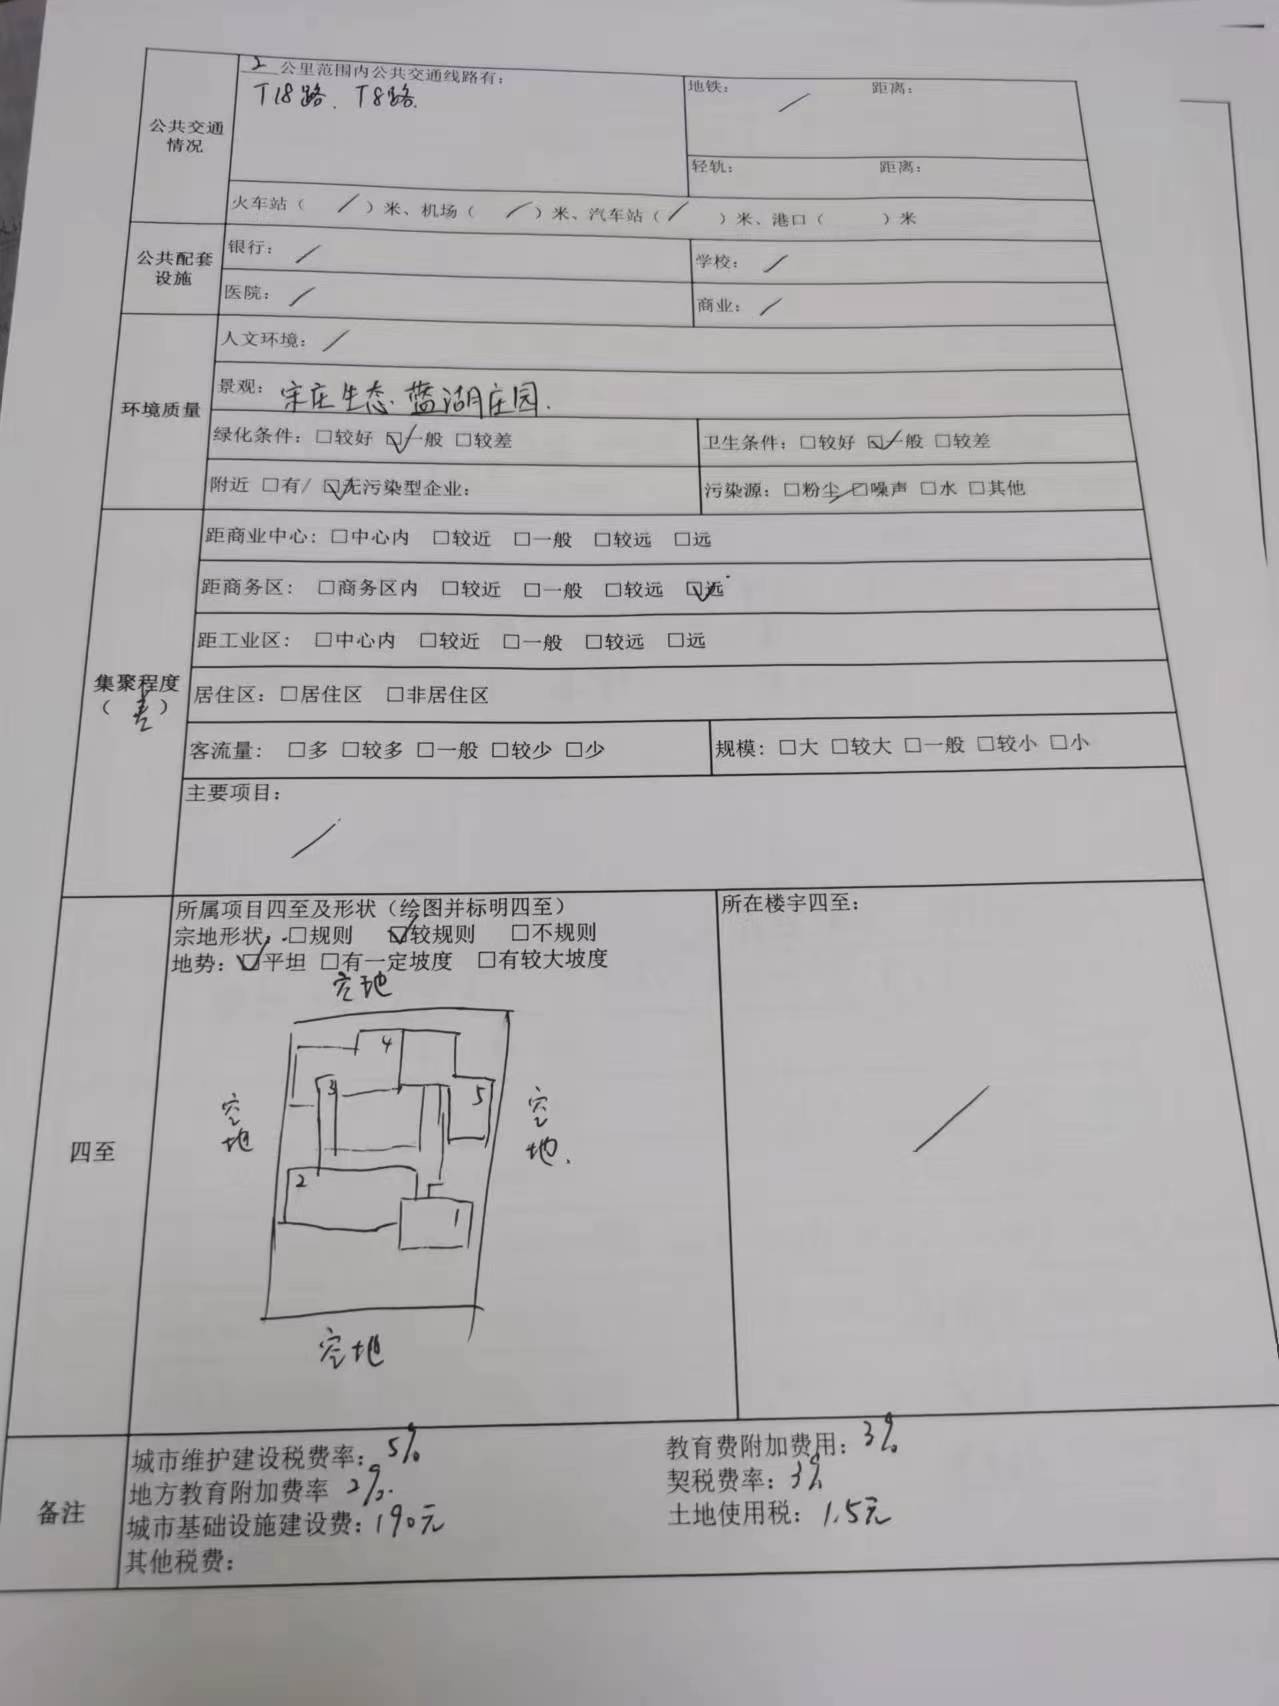 2 公里范围内公共交通线路有：
T18路、T8路.
地铁： / 距离：
公共交通
情况
轻轨： 距离：
火车站（ / ）米、机场（ / ）米、汽车站（ / ）米、港口（ ）米
公共配套
设施
银行： /
学校： /
医院： /
商业： /
环境质量
人文环境： /
景观：宋庄生态.蓝湖庄园.
绿化条件：□较好 ☑一般 □较差
卫生条件：□较好 ☑一般 □较差
附近 □有/ ☑无污染型企业：
污染源：□粉尘 □噪声 □水 □其他
集聚程度
（差）
距商业中心：□中心内 □较近 □一般 □较远 □远
距商务区：□商务区内 □较近 □一般 □较远 ☑远
距工业区：□中心内 □较近 □一般 □较远 □远
居住区：□居住区 □非居住区
客流量：□多 □较多 □一般 □较少 □少
规模：□大 □较大 □一般 □较小 □小
主要项目：
/
四至
所属项目四至及形状（绘图并标明四至）
宗地形状：□规则 ☑较规则 □不规则
地势：☑平坦 □有一定坡度 □有较大坡度
空地
4
3
5
空地
空地.
2
1
空地
所在楼宇四至：
/
备注
城市维护建设税费率：5%
教育费附加费用：3%
地方教育附加费率 2%.
契税费率：3%
城市基础设施建设费：190元
土地使用税：1.5元
其他税费：